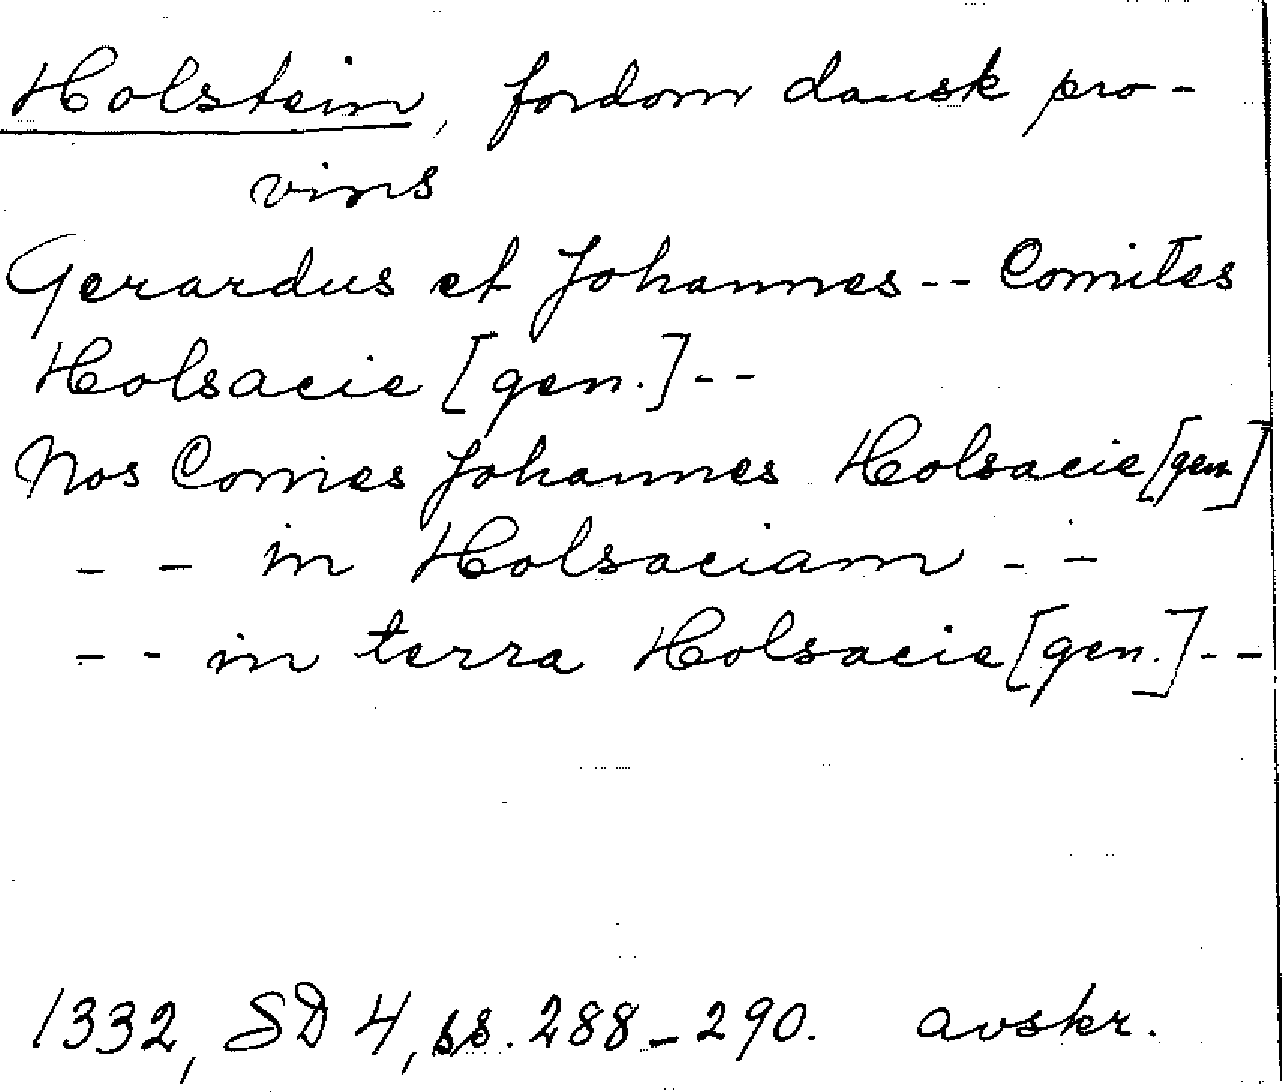 Holstein, fordom dansk pro-
vins
Gerardus et Johannes -- Comites
Holsacie [gen.] --
Nos Comes Johannes Holsacie [gen]
-- in Holsaciam --
-- in terra Holsacie [gen.] --
1332, SD 4, ss. 288-290. avskr.